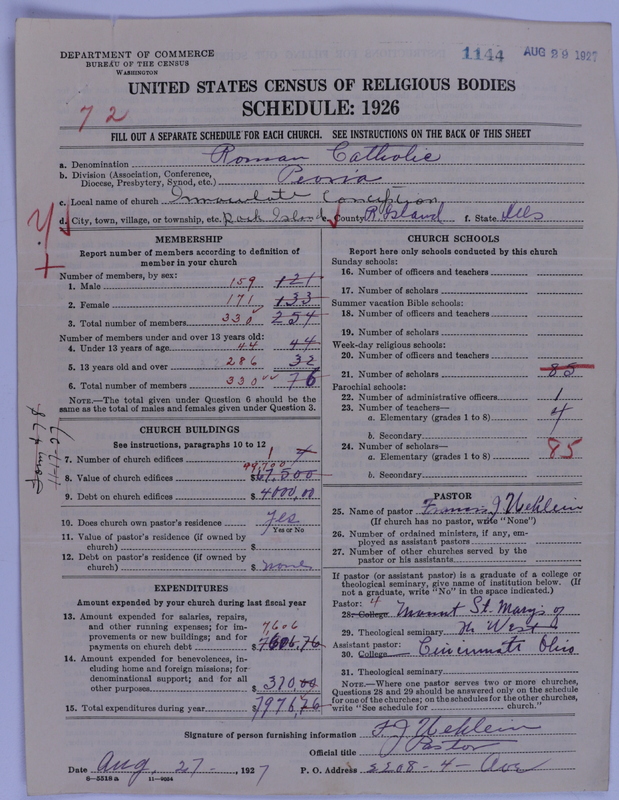 DEPARTMENT OF COMMERCE
BUREAU OF THE CENSUS
WASHINGTON
1144 AUG 29 1927
UNITED STATES CENSUS OF RELIGIOUS BODIES
SCHEDULE: 1926
72
FILL OUT A SEPARATE SCHEDULE FOR EACH CHURCH. SEE INSTRUCTIONS ON THE BACK OF THIS SHEET
a. Denomination Roman Catholic
b. Division (Association, Conference, Diocese, Presbytery, Synod, etc.) Peoria
c. Local name of church Immaculate Conception
d. City, town, village, or township, etc. Rock Island e. County R. Island f. State Ills
MEMBERSHIP
Report number of members according to definition of
member in your church
Number of members, by sex:
1. Male 159 121
2. Female 171 133
3. Total number of members 330 254
Number of members under and over 13 years old:
4. Under 13 years of age 44 44
5. 13 years old and over 286 32
6. Total number of members 330 76
NOTE.—The total given under Question 6 should be the
same as the total of males and females given under Question 3.
Form 478
11-17-27
CHURCH BUILDINGS
See instructions, paragraphs 10 to 12
7. Number of church edifices 1
8. Value of church edifices $ 67,500
9. Debt on church edifices $ 4000.00
10. Does church own pastor's residence Yes
Yes or No
11. Value of pastor's residence (if owned by
church) $
12. Debt on pastor's residence (if owned by
church) $ none
EXPENDITURES
Amount expended by your church during last fiscal year
13. Amount expended for salaries, repairs,
and other running expenses; for im-
provements or new buildings; and for
payments on church debt 7606 $ 7606.76
14. Amount expended for benevolences, in-
cluding home and foreign missions; for
denominational support; and for all
other purposes 370.00
15. Total expenditures during year $ 7976.76
CHURCH SCHOOLS
Report here only schools conducted by this church
Sunday schools:
16. Number of officers and teachers
17. Number of scholars
Summer vacation Bible schools:
18. Number of officers and teachers
19. Number of scholars
Week-day religious schools:
20. Number of officers and teachers
21. Number of scholars 85
Parochial schools:
22. Number of administrative officers 1
23. Number of teachers—
a. Elementary (grades 1 to 8) 4
b. Secondary
24. Number of scholars—
a. Elementary (grades 1 to 8) 85
b. Secondary
PASTOR
25. Name of pastor Francis J Nehlein
(If church has no pastor, write "None")
26. Number of ordained ministers, if any, em-
ployed as assistant pastors
27. Number of other churches served by the
pastor or his assistants
If pastor (or assistant pastor) is a graduate of a college or
theological seminary, give name of institution below. (If
not a graduate, write "No" in the space indicated.)
Pastor: 4
28. College Mount St. Marys of
29. Theological seminary the West
Assistant pastor:
30. College Cincinnati Ohio
31. Theological seminary
NOTE.—Where one pastor serves two or more churches,
Questions 28 and 29 should be answered only on the schedule
for one of the churches; on the schedules for the other churches,
write "See schedule for church."
Signature of person furnishing information F J Nehlein
Official title Pastor
Date Aug. 27, 1927 P. O. Address 2208 - 4 - Ave
8—5518 a 11—9034